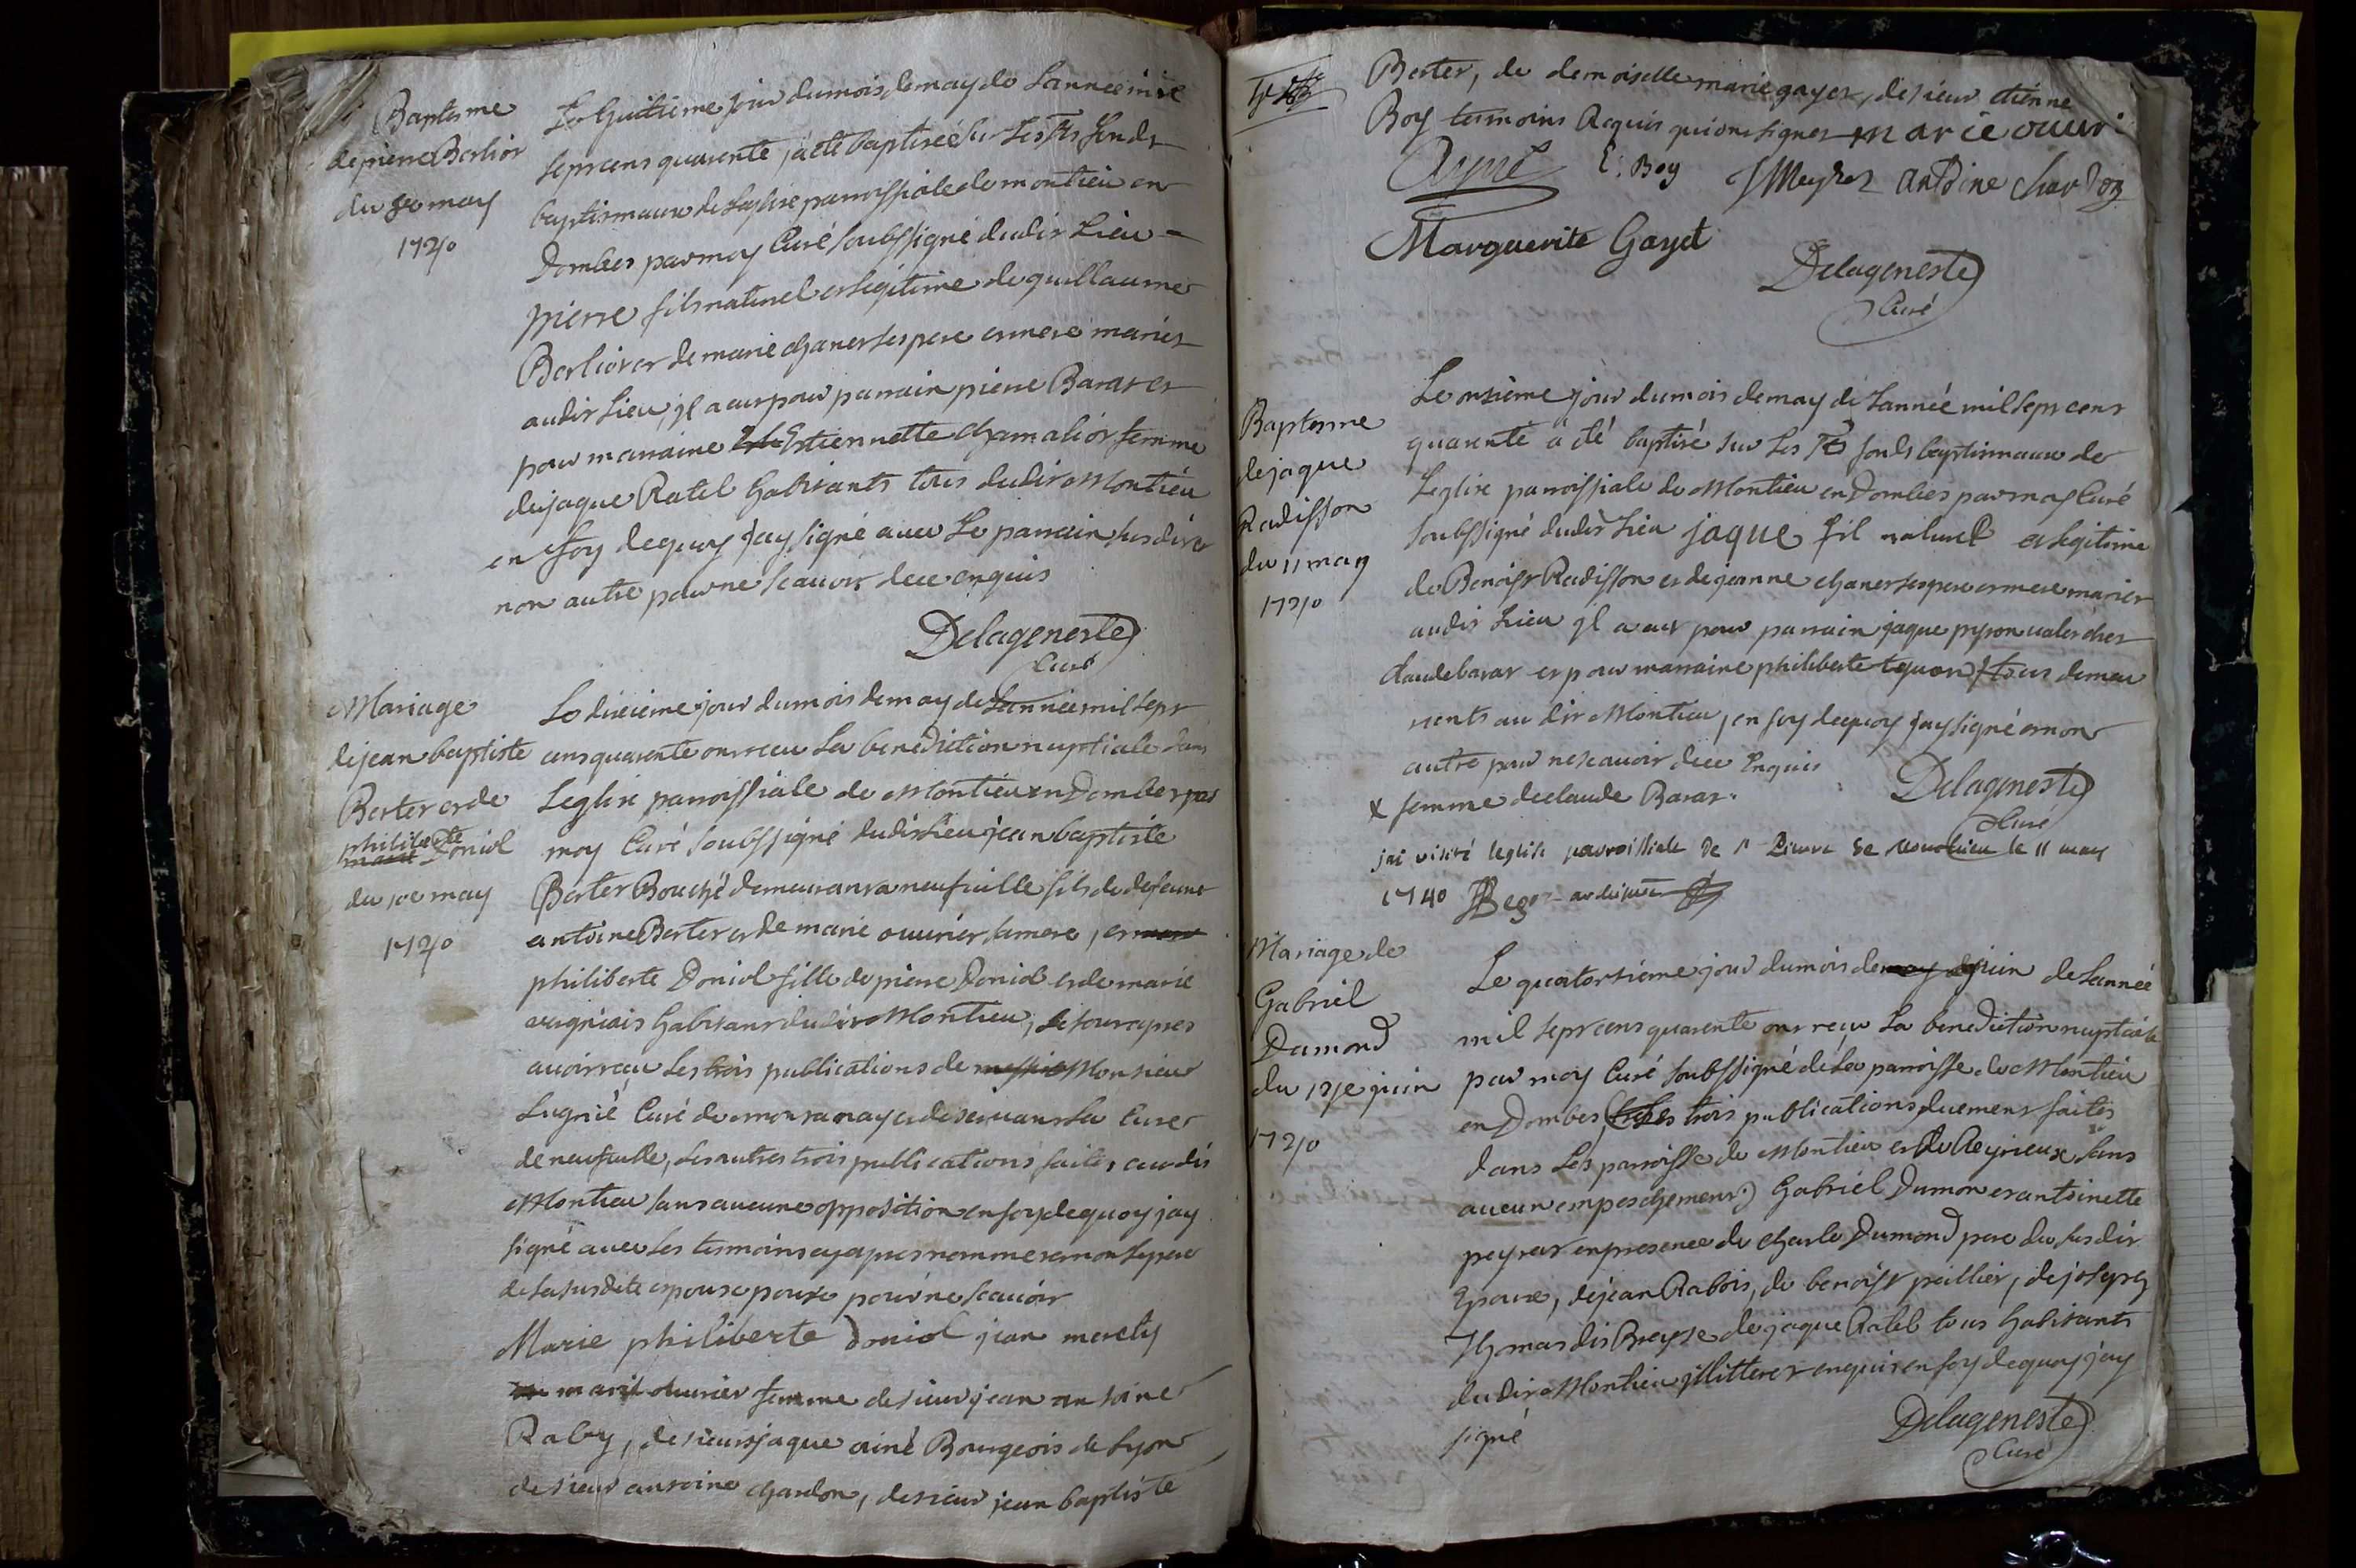 Baptesme
de pierre Berlior
du 8e may
1740
Le huitieme jour du mois de may de Lannee mil
sept cens quarente, a eté baptiseé sur Les Sts fonds
baptismaux de Leglise parroissiale de montieu en
Dombes par moy Curé soubssigné dudit Lieu =
pierre fils naturel et legitime de guillaume
Berlior et de marie chanet ses pere et mere mariés
audit Lieu, jl a eut pour parrain pierre Barat et
pour marraine Estiennette chamalior femme
de jaque Ratel habitants tous dudit Montieu
en foy de quoy jay signé avec Le parrain susdit et
non autre pour ne scavoir de ce enquis
Delageneste
Curé
Mariage
de jean baptiste
Berter et de
philiberte
marie Doniol
du 10e may
1740
Le dixieme jour du mois de may de Lannee mil sept
cens quarente ont receu La benediction nuptiale dans
Leglise parroissiale de Montieu en Dombes par
moy Curé soubssigné dudit Lieu jean baptiste
Berter Bouché demeurant a neufville fils de defeunt
antoine Berter et de marie ouvrier sa mere, et
philiberte Doniol fille de pierre Doniol et de marie
habitant dudit Montieu, le tout apres
avoir receu Les trois publications de messire Monsieur
Lugnié Curé de montanay et deservant La Cure
de neufville, Les autres trois publications faites audit
Montieu sans aucune opposition en foy de quoy jay
signé avec Les tesmoins cy apres nommes et non Le pere
de La susdite epouse pour ne scavoir
Marie philiberte doniol jean
marie ouvrier femme de sieur jean antoine
Raby, de sieur jaque ainé Bourgeois de Lyon
de sieur antoine chardon, de sieur jean baptiste
Berter, de demoiselle marie gayet, de sieur etienne
Boy tesmoins Requis qui ont signes marie ouvri
Ayné E: Boy JMeyret antoine chardon
Marguerite Gayet
Delageneste
Curé
Baptesme
de jaque
Radisson
du 11 may
1740
Le onsième jour du mois de may de Lannée mil sept cens
quarente a eté baptisé sur Les Sts fonds baptismaux de
Leglise parroissiale de Montieu en Dombes par moy Curé
soubssigné dudit Lieu jaque fil naturel et legitime
de Benoist Radisson et de jeanne chanet ses pere et mere mariés
audit Lieu jl a eut pour parrain jaque pyron valet ches
claude barat et pour marraine philiberte tous demeu
rents au dit Montieu, en foy de quoy jay signé et non
autre pour ne scavoir de ce Enquis
x femme de claude Barat.
Delageneste
Curé
jai visité leglise parroissiale de St Pierre de montieu le 11 may
1740
Mariage de
Gabriel
Dumond
du 14e juin
1740
Le quatorsième jour du mois de may de juin de Lannée
mil sept cens quarente ont reçu La benediction nuptiale
par moy Curé soubssigné de La parroisse de Montieu
en Dombes (Les trois publications duement faites
dans Les parroisse de Montieu et de Reyrieux sans
aucun empeschement) Gabriel Dumon et antoinette
peyrat en presence de charle Dumond pere du susdit
Epoux, de jean Rabois, de benoist peillier, de joseph
Thomas dit Breysse de jaque Ratel tous habitants
dudit Montieu jllitteres enquis en foy de quoy jay
signé
Delageneste
Curé